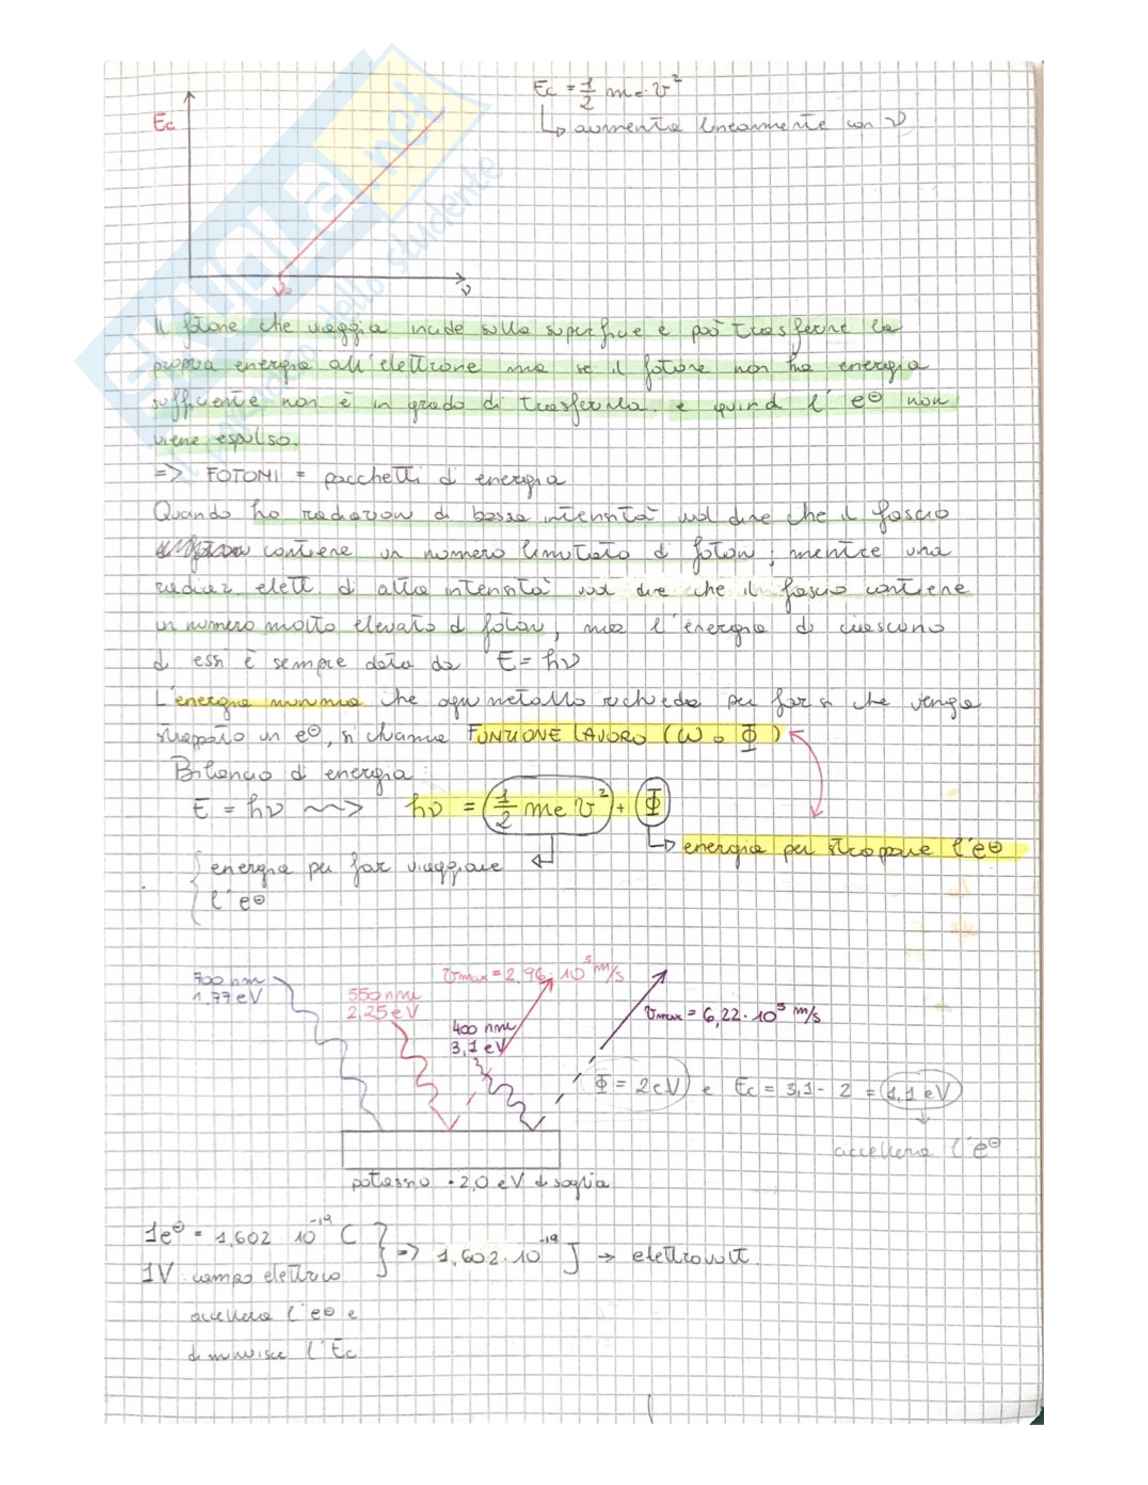 Ec = 1/2 me·v²
Ec
↳ aumenta linearmente con ν
ν₀
ν
SKUOLA.net
dello studente
Il fotone che viaggia incide sulla superficie e può trasferire la
propria energia all'elettrone ma se il fotone non ha energia
sufficiente non è in grado di trasferirla e quindi l'e⊖ non
viene espulso.
=> FOTONI = pacchetti di energia
Quando ho radiazioni di bassa intensità vuol dire che il fascio
contiene un numero limitato di fotoni, mentre una
radiaz. elett. di alta intensità vuol dire che il fascio contiene
un numero molto elevato di fotoni, ma l'energia di ciascuno
di essi è sempre data da E = hν
L'energia minima che ogni metallo richiede per far sì che venga
strappato un e⊖, si chiama FUNZIONE LAVORO (W o Φ)
Bilancio di energia:
E = hν ~~> hν = 1/2 me v² + Φ
↳ energia per strappare l'e⊖
energia per far viaggiare
l'e⊖
700 nm
1,77 eV
550 nm
2,25 eV
vmax = 2,96·10⁵ m/s
400 nm
3,1 eV
vmax = 6,22·10⁵ m/s
Φ = 2 eV e Ec = 3,1 - 2 = 1,1 eV
accellera l'e⊖
potassio · 2,0 eV di soglia
1e⊖ = 1,602 10⁻¹⁹ C } => 1,602·10⁻¹⁹ J → elettrovolt.
1V campo elettrico
accellera l'e⊖ e
diminuisce l'Ec